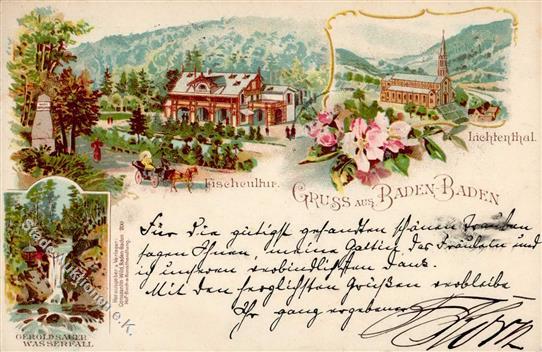 Fischcultur.
Lichtenthal.
GRUSS AUS BADEN-BADEN
GEROLDSAUER
WASSERFALL
Für die gütigst gesandten schönen Trauben
sagen Ihnen, meine Gattin das Fräulein und
ich unseren verbindlichsten Dank.
Mit den herzlichsten Grüßen verbleibe
Ihr ganz ergebener